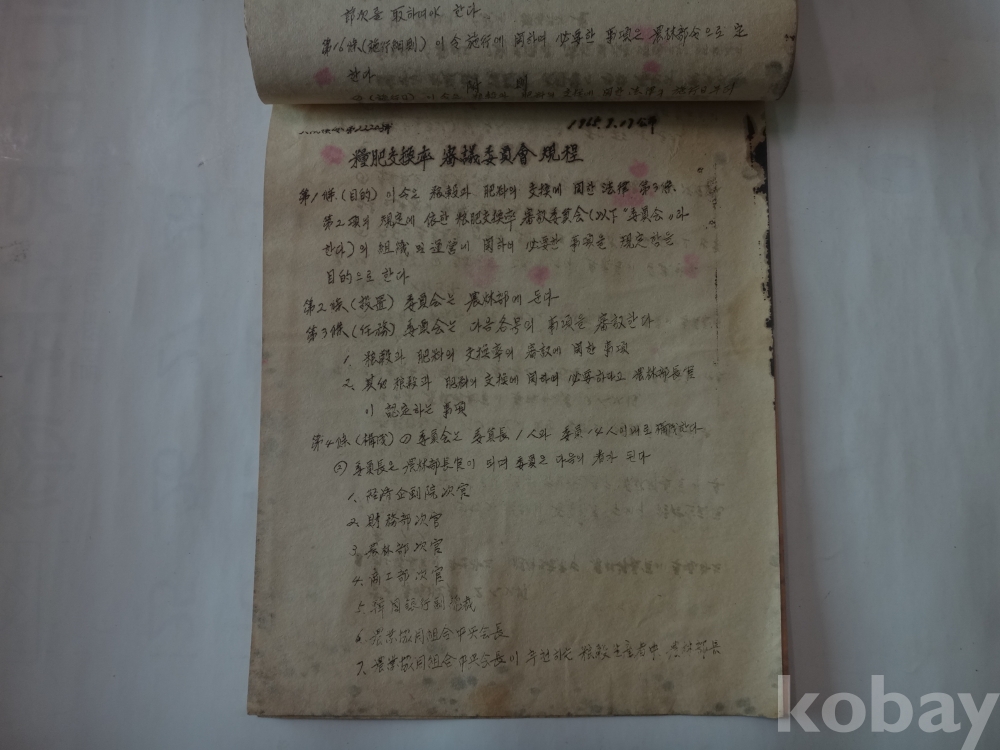 部次를 取하여야 한다.
第16條(施行細則) 이 令 施行에 関하여 必要한 事項은 農林部令으로 定
한다
附 則
이 令은
1965. 9. 13 公布
糧肥交換率 審議委員會 規程
第1條.(目的) 이 令은 糧穀과 肥料의 交換에 関한 法律 第3條
第2項의 規定에 依한 糧肥交換率 審議委員会(以下 "委員会"라
한다)의 組織 및 運営에 関하여 必要한 事項을 規定함을
目的으로 한다
第2條(設置) 委員会는 農林部에 둔다
第3條(任務) 委員会는 다음 各号의 事項을 審議한다
1. 糧穀과 肥料의 交換率의 審議에 関한 事項
2. 其他 糧穀과 肥料의 交換에 関하여 必要하다고 農林部長官
이 認定하는 事項
第4條(構成) ① 委員会는 委員長 1人과 委員 14人 以内로 構成한다
② 委員長은 農林部長官이 되며 委員은 다음의 者가 된다
1. 経済企劃院次官
2. 財務部次官
3. 農林部次官
4. 商工部次官
5. 韓国銀行副総裁
6. 農業協同組合中央会長
7. 農業協同組合中央会長이 추천하는 糧穀生産者中 農林部長
kobay